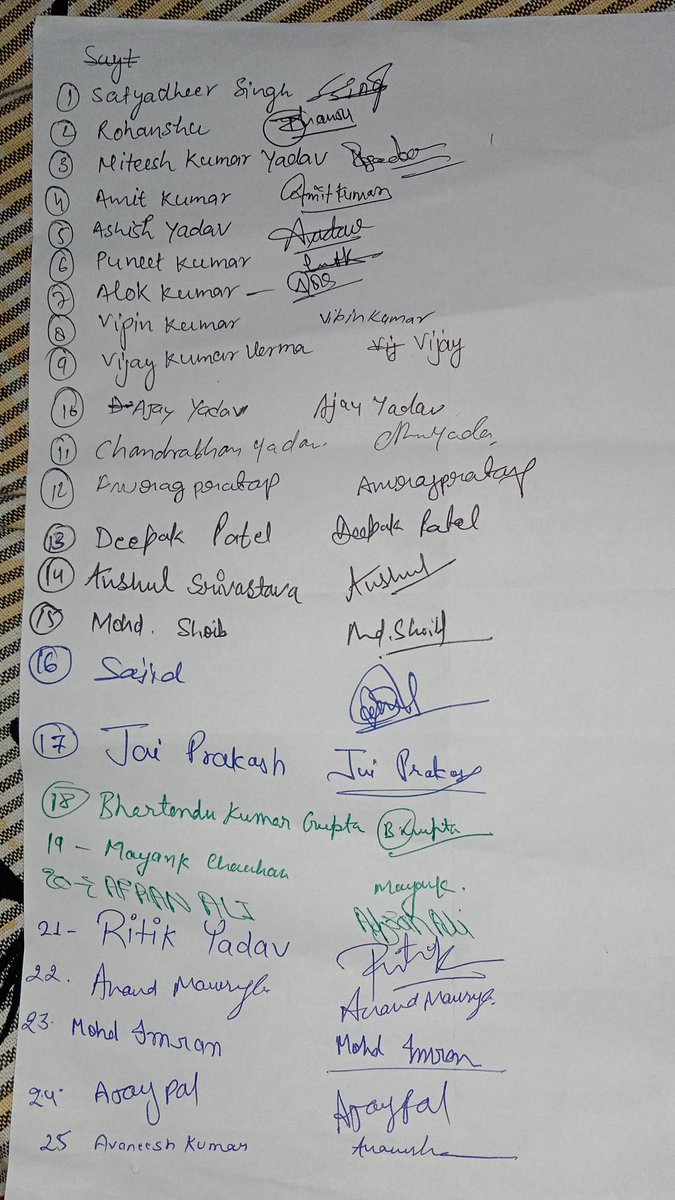 Sayt
1 Satyadheer Singh Singh
2 Rohanshu
3 Miteesh Kumar Yadav
4 Amit Kumar Amit Kumar
5 Ashish Yadav AYadav
6 Puneet Kumar
7 Alok Kumar –
8 Vipin Kumar Vipin Kumar
9 Vijay Kumar Verma Vij Vijay
10 Ajay Yadav Ajay Yadav
11 Chandrabhan Yadav
12 Anurag pratap Anuragpratap
13 Deepak Patel Deepak Patel
14 Anshul Srivastava Anshul
15 Mohd. Shoib Md. Shoib
16 Sajid
17 Jai Prakash Jai Prakash
18 Bhartendu Kumar Gupta BKGupta
19 – Mayank Chauhan Mayank.
20 - AFPAN ALI
21 - Ritik Yadav Ritik
22. Anand Maurya Anand Maurya
23. Mohd Imran Mohd Imran
24. Ajaypal Ajaypal
25 Avaneesh Kumar